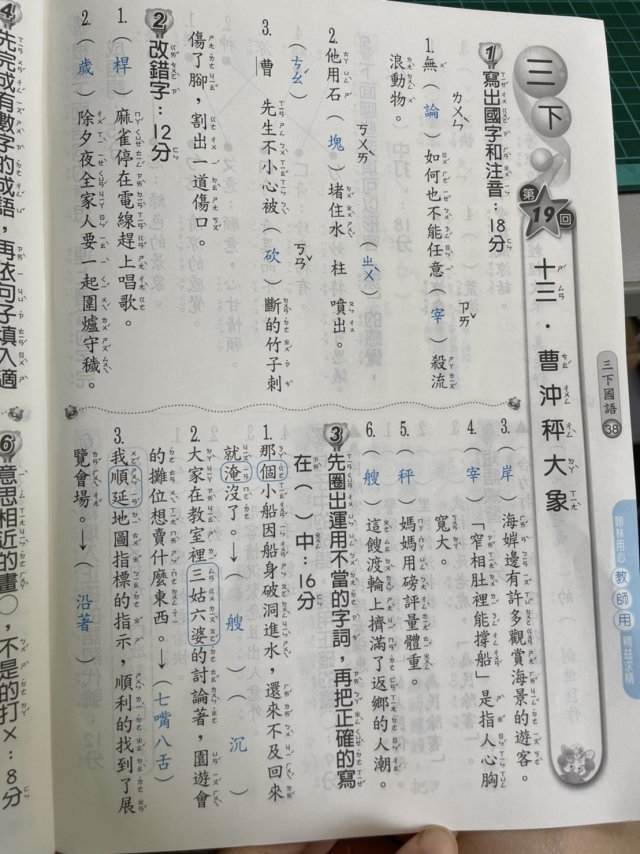 三下國語 38
翰林用心 教師用 精益求精
三下 第19回 十三．曹沖秤大象
1 寫出國字和注音：18分
1. 無（論）如何也不能任意（宰）殺流
ㄌㄨㄣˋ
ㄗㄞˇ
浪動物。
2. 他用石（塊）堵住水柱噴出。
ㄎㄨㄞˋ
（ㄓㄨˋ）
3. 曹先生不小心被（砍）斷的竹子刺
（ㄘㄠˊ）
ㄎㄢˇ
傷了腳，割出一道傷口。
2 改錯字：12分
1.（桿）麻雀停在電線趕上唱歌。
2.（歲）除夕夜全家人要一起圍爐守穢。
3.（岸）海婩邊有許多觀賞海景的遊客。
4.（宰）「窄相肚裡能撐船」是指人心胸
寬大。
5.（秤）媽媽用磅評量體重。
6.（艘）這餿渡輪上擠滿了返鄉的人潮。
3 先圈出運用不當的字詞，再把正確的寫
在（ ）中：16分
1. 那個小船因船身破洞進水，還來不及回來
就淹沒了。→（艘）（沉）
2. 大家在教室裡三姑六婆的討論著，園遊會
的攤位想賣什麼東西。→（七嘴八舌）
3. 我順延地圖指標的指示，順利的找到了展
覽會場。→（沿著）
4 先完成有數字的成語，再依句子填入適
6 意思相近的畫○，不是的打×：8分